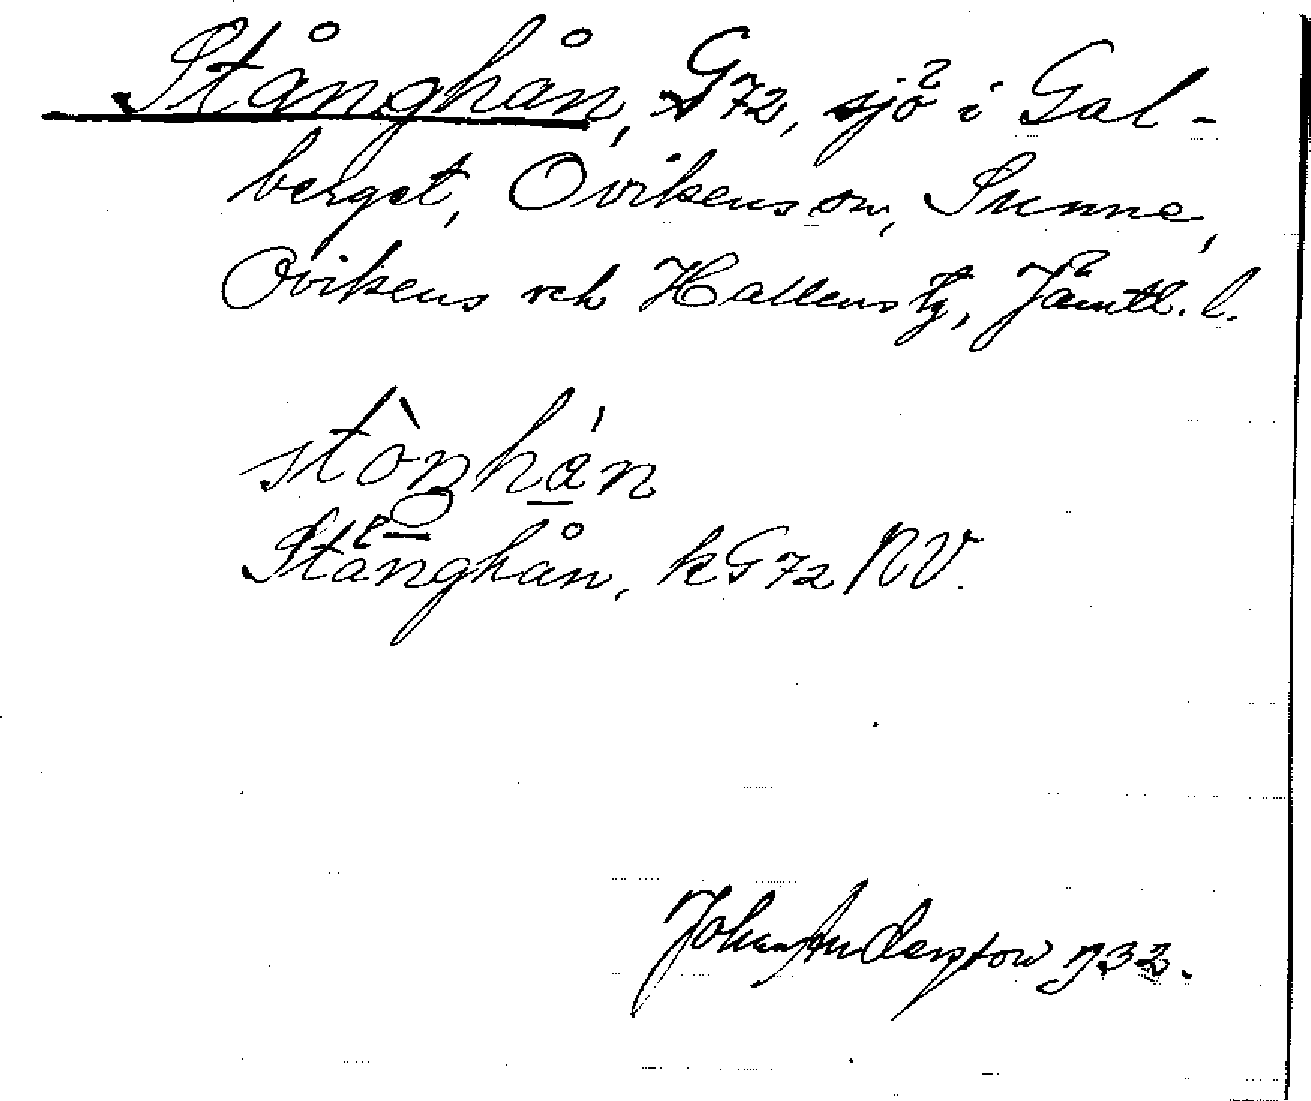 Stånghån, G72, sjö i Gal-
berget, Ovikens sn, Sunne,
Ovikens och Hallens tg, Jämtl. l.
stòŋhán
Stånghån, kG72 NV.
Johan Anderson 1932.